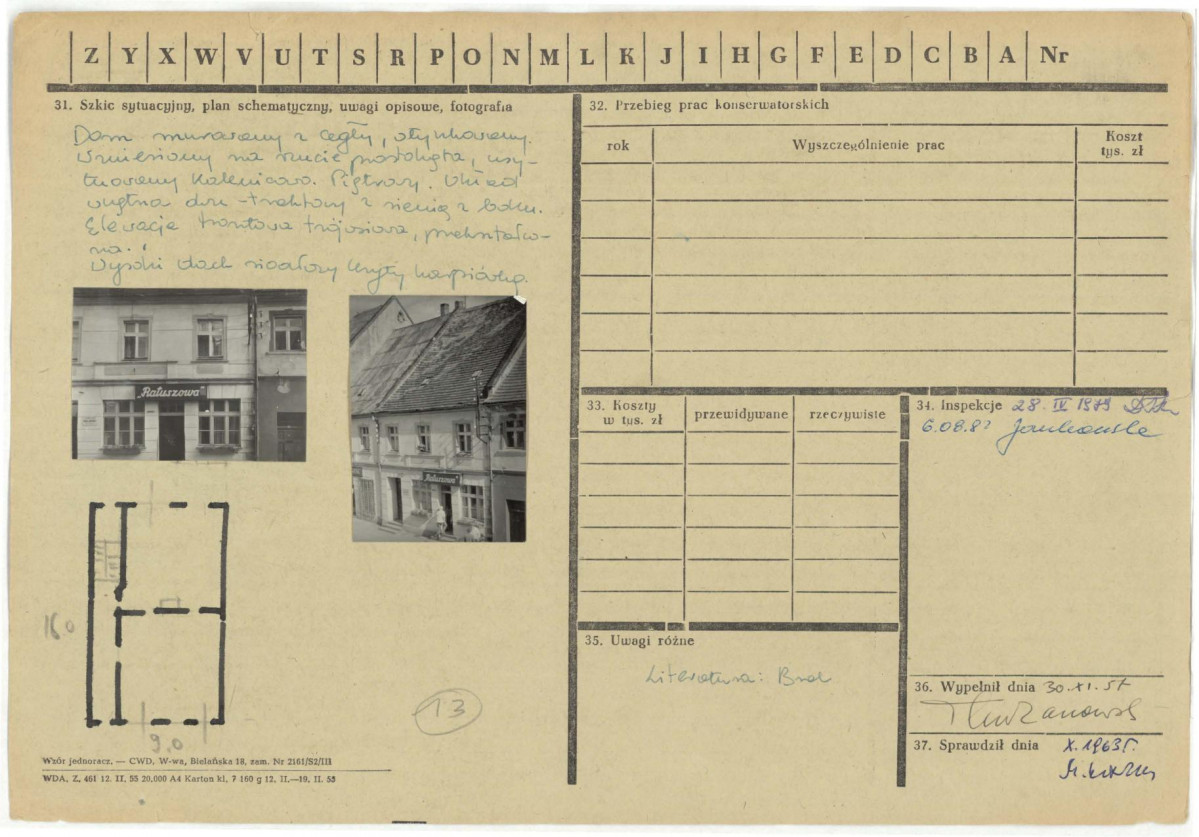 Z Y X W V U T S R P O N M L K J I H G F E D C B A Nr
31. Szkic sytuacyjny, plan schematyczny, uwagi opisowe, fotografia
Dom murowany z cegły, otynkowany.
Wzniesiony na rzucie prostokąta, usy-
tuowany kalenicowo. Piętrowy. Układ
wnętrza dwu-traktowy z sienią z boku.
Elewacja frontowa trójosiowa, przekształco-
na.
Wysoki dach siodłowy kryty karpiówką.
„Ratuszowa"
„Ratuszowa"
16.0
9.0
13
Wzór jednoracz. — CWD, W-wa, Bielańska 18, zam. Nr 2161/S2/III
WDA, Z. 461 12. II. 55 20.000 A4 Karton kl. 7 160 g 12. II.—19. II. 55
32. Przebieg prac konserwatorskich
rok
Wyszczególnienie prac
Koszt
tys. zł
33. Koszty
w tys. zł
przewidywane
rzeczywiste
34. Inspekcje 28. IV 1979
6.08.8? Jankowska
35. Uwagi różne
Literatura: Brak
36. Wypełnił dnia 30.XI.57
37. Sprawdził dnia X.1963 r.